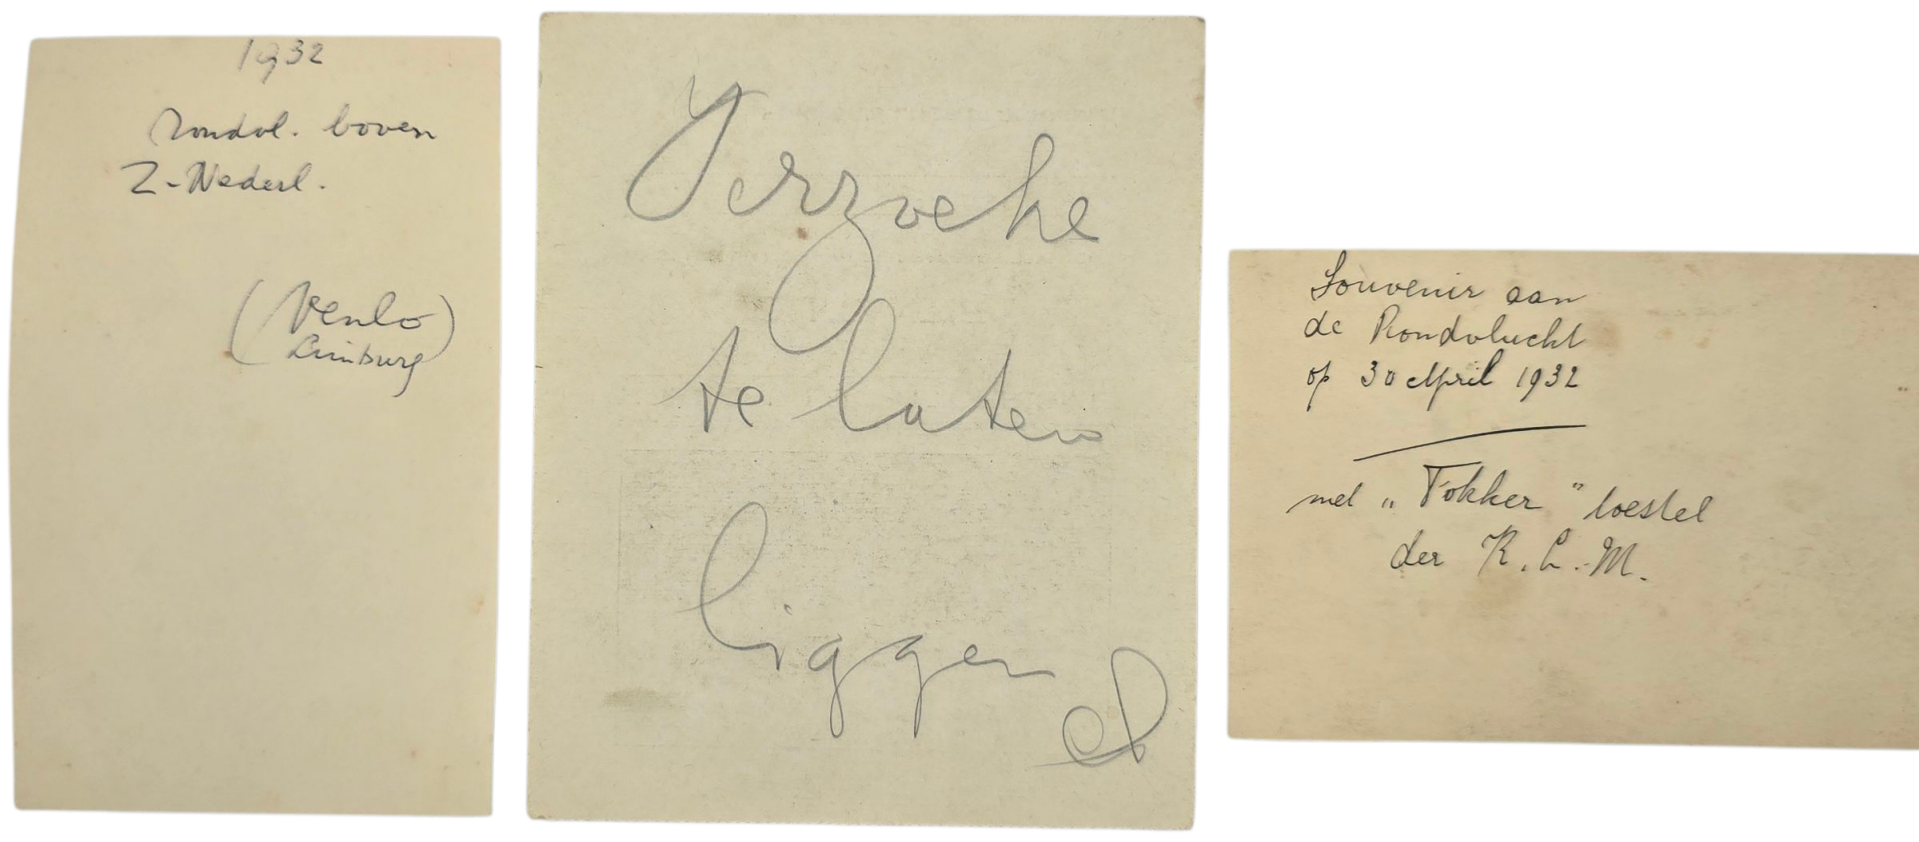 1932
Rondvl. boven
Z-Nederl.
(Venlo)
Limburg
Verzoeke
te laten
liggen
Souvenir aan
de Rondvlucht
op 30 April 1932
met „Fokker” toestel
der K.L.M.